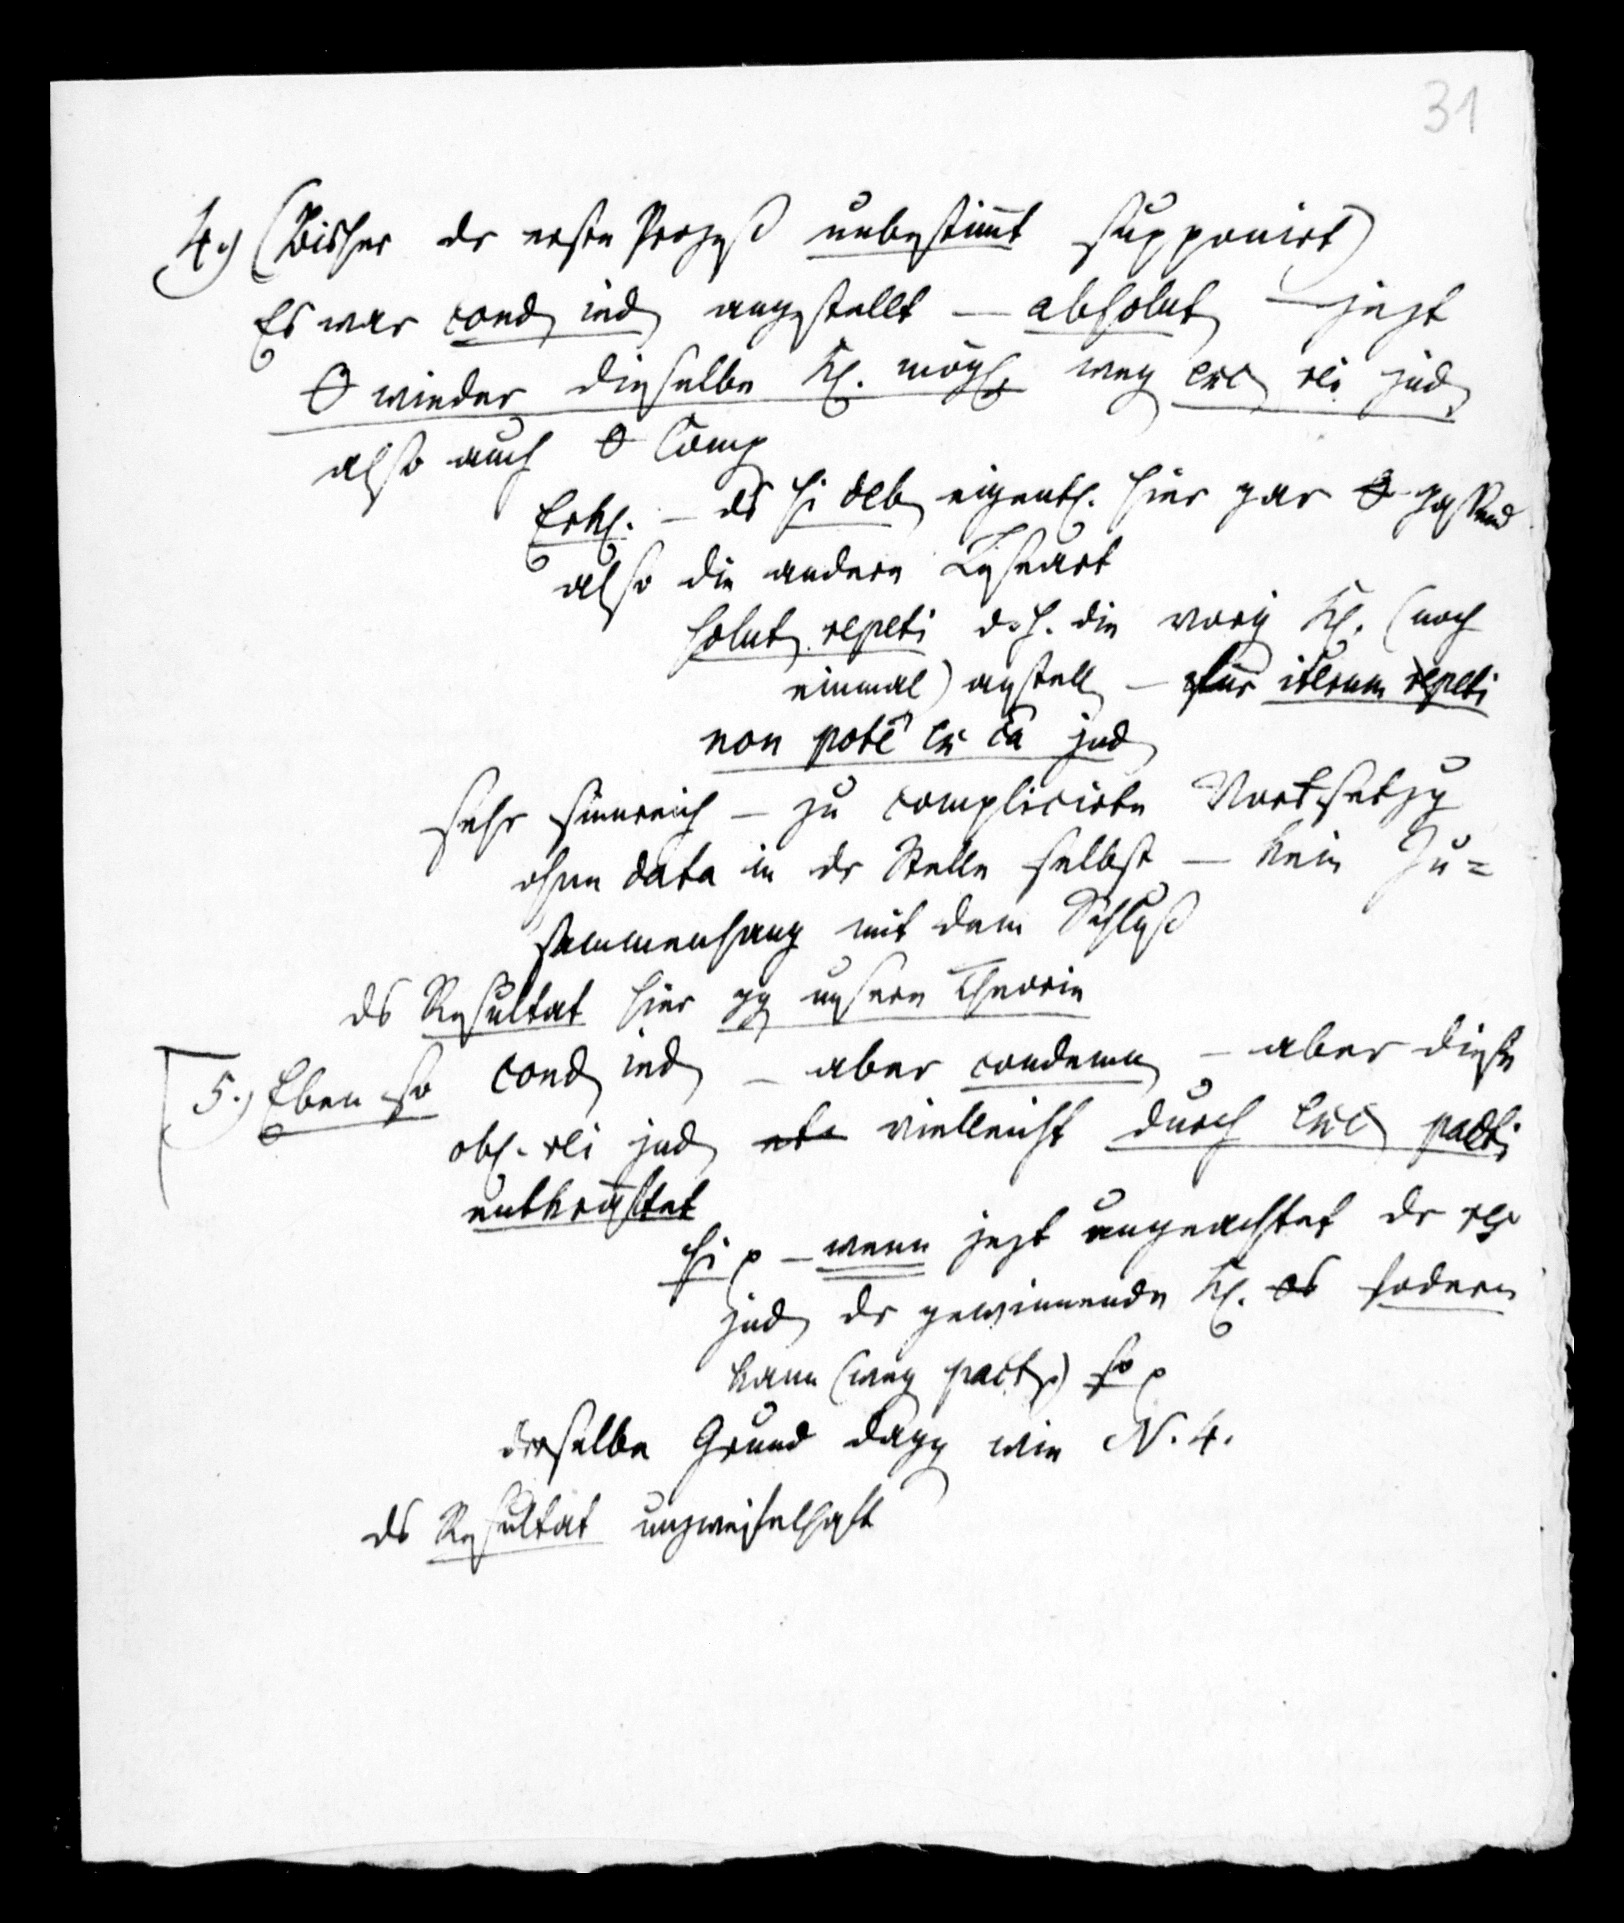 31
4.) (Bisher dr erste Prozeß unbestimt supponirt)
Es war cond ind angestellt — absolut — jezt
0 wieder dieselbe Kl. mögl. weg exc rei jud
also auch 0 Comp
Erkl. — ds si deb eigentl. hier gar 0 passend
also die andere Leseart
solut repeti d. h. die vorig Kl. (noch
einmal) anstell — für iterum repeti
non potē ex ca jud
sehr sinnreich — zu complicirte
ohne data in dr Stelle selbst — kein Zu=
sammenhang mit dem Schluß
ds Resultat hier gg unsere Theorie
5.) Eben so cond ind — aber condemn — aber diese
obl. rei jud vielleicht durch exc pacti
entkräftet
si p — wenn jezt ungeachtet dr rei
jud dr gewinnende Kl. fodern
kann (weg pact.) so p
derselbe Grund dagg wie N. 4.
ds Resultat unzweifelhaft